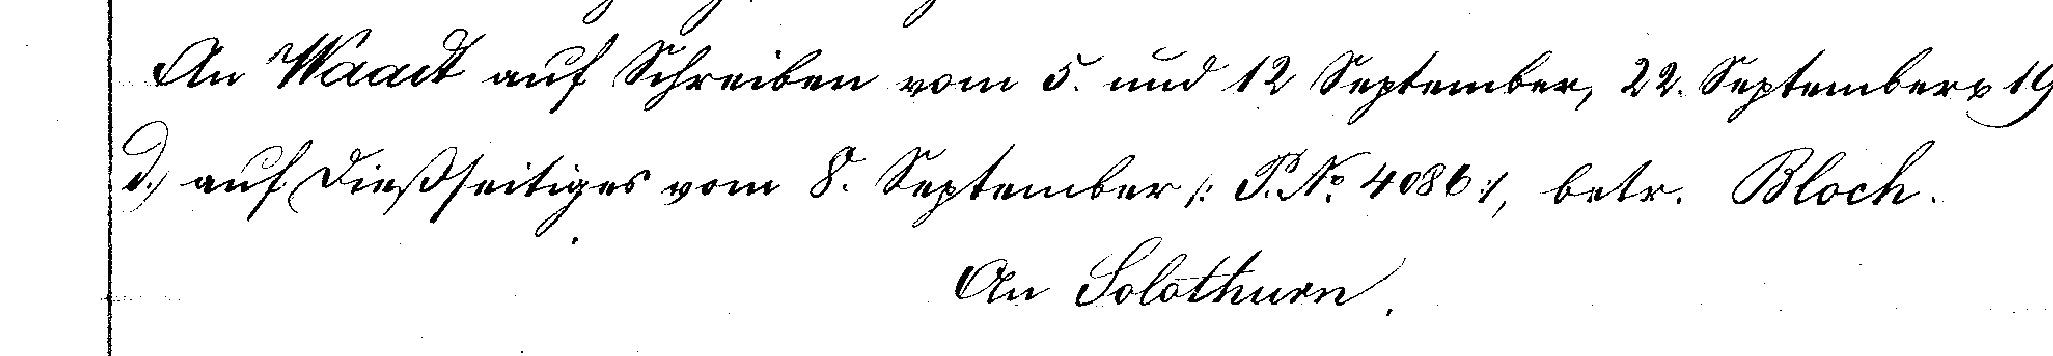 An Waadt auf Schreiben vom 5. und 12 September, 22. September & 19
d.) auf Dießseitiges vom 8. September /: P. No. 4086 :/, betr. Bloch.
An Solothurn.